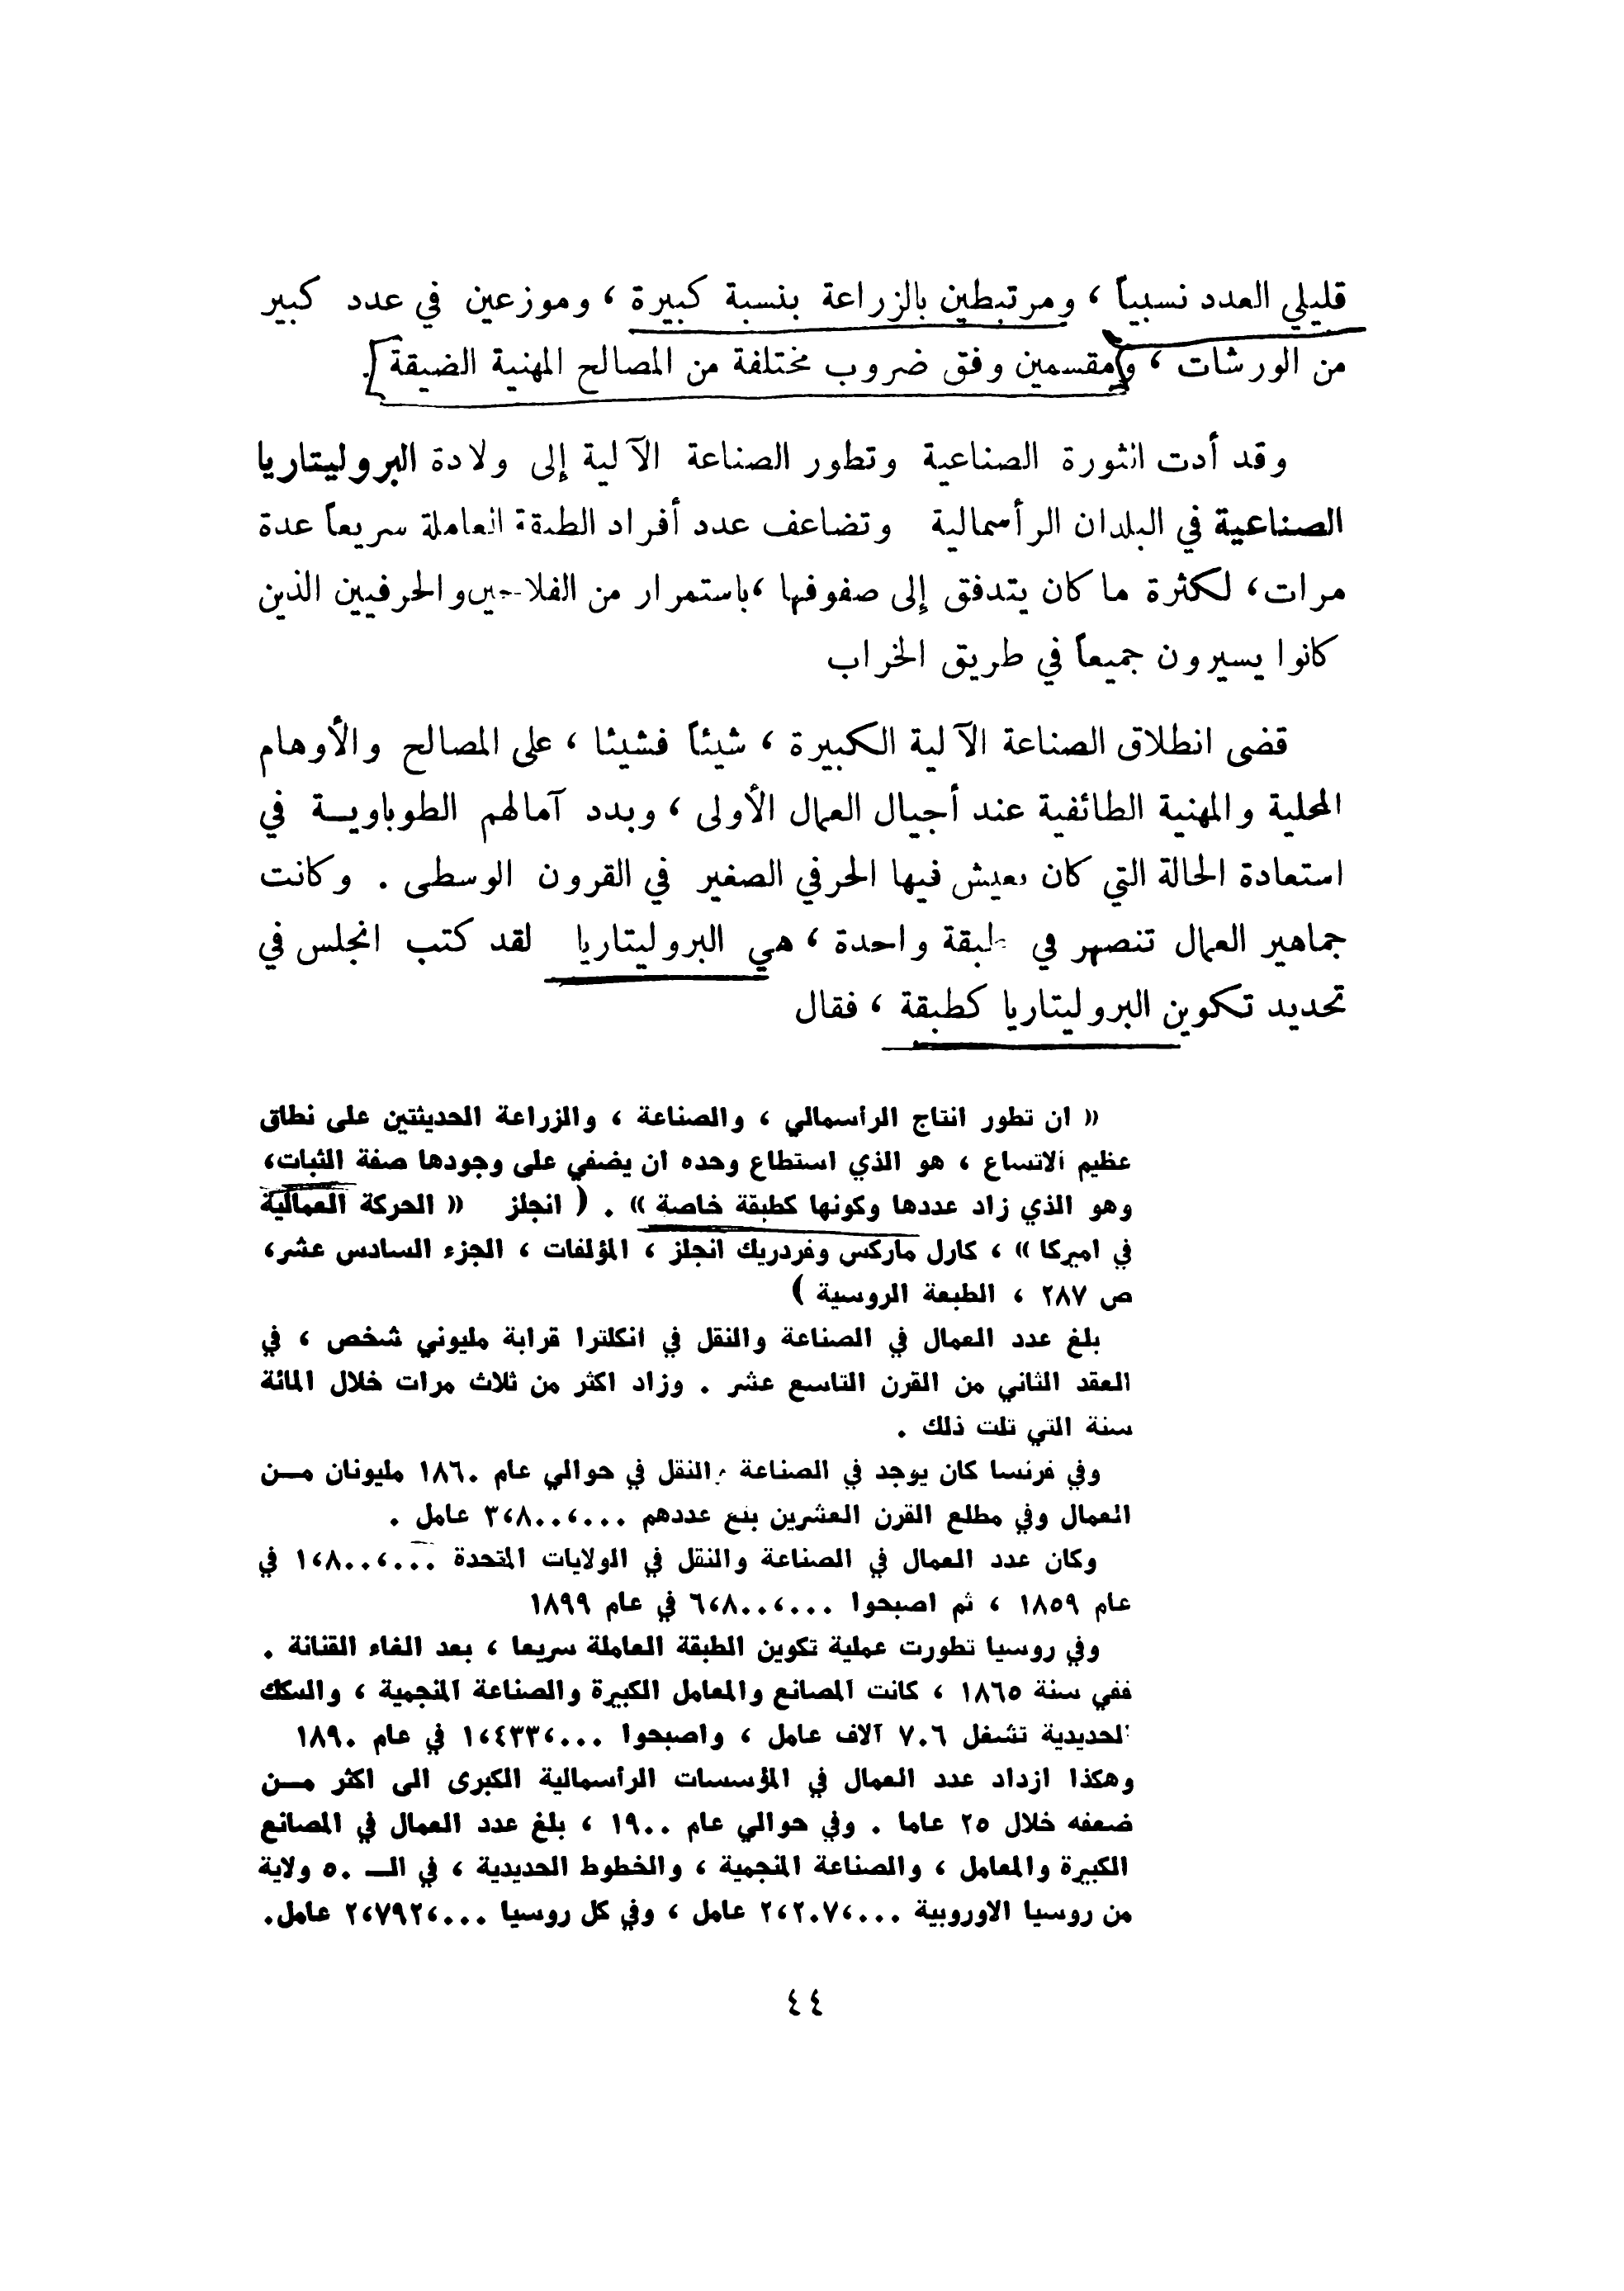 قليلي العدد نسبياً ، ومرتبطين بالزراعة بنسبة كبيرة ، وموزعين في عدد كبير
من الورشات ، ومقسمين وفق ضروب مختلفة من المصالح المهنية الضيقة .
وقد أدت الثورة الصناعية وتطور الصناعة الآلية إلى ولادة البروليتاريا
الصناعية في البلدان الرأسمالية وتضاعف عدد أفراد الطبقة العاملة سريعاً عدة
مرات، لكثرة ما كان يتدفق إلى صفوفها ،باستمرار من الفلاحين والحرفيين الذين
كانوا يسيرون جميعاً في طريق الخراب
قضى انطلاق الصناعة الآلية الكبيرة ، شيئاً فشيئا ، على المصالح والأوهام
المحلية والمهنية الطائفية عند أجيال العمال الأولى ، وبدد آمالهم الطوباويــة في
استعادة الحالة التي كان يعيش فيها الحرفي الصغير في القرون الوسطى . وكانت
جماهير العمال تنصهر في طبقة واحدة ، هي البروليتاريا لقد كتب انجلس في
تحديد تكوين البروليتاريا كطبقة ، فقال
« ان تطور انتاج الرأسمالي ، والصناعة ، والزراعة الحديثتين على نطاق
عظيم الاتساع ، هو الذي استطاع وحده ان يضفي على وجودها صفة الثبات،
وهو الذي زاد عددها وكونها كطبقة خاصة » . ( انجلز « الحركة العمالية
في اميركا » ، كارل ماركس وفردريك انجلز ، المؤلفات ، الجزء السادس عشر،
ص ٢٨٧ ، الطبعة الروسية )
بلغ عدد العمال في الصناعة والنقل في انكلترا قرابة مليوني شخص ، في
العقد الثاني من القرن التاسع عشر . وزاد اكثر من ثلاث مرات خلال المائة
سنة التي تلت ذلك .
وفي فرنسا كان يوجد في الصناعة والنقل في حوالي عام ١٨٦٠ مليونان مــن
العمال وفي مطلع القرن العشرين بلغ عددهم ٣،٨٠٠،٠٠٠ عامل .
وكان عدد العمال في الصناعة والنقل في الولايات المتحدة ١،٨٠٠،٠٠٠ في
عام ١٨٥٩ ، ثم اصبحوا ٦،٨٠٠،٠٠٠ في عام ١٨٩٩
وفي روسيا تطورت عملية تكوين الطبقة العاملة سريعا ، بعد الغاء القنانة .
ففي سنة ١٨٦٥ ، كانت المصانع والمعامل الكبيرة والصناعة المنجمية ، والسكك
الحديدية تشغل ٧٠٦ آلاف عامل ، واصبحوا ١،٤٣٣،٠٠٠ في عام ١٨٩٠
وهكذا ازداد عدد العمال في المؤسسات الرأسمالية الكبرى الى اكثر مــن
ضعفه خلال ٢٥ عاما . وفي حوالي عام ١٩٠٠ ، بلغ عدد العمال في المصانع
الكبيرة والمعامل ، والصناعة المنجمية ، والخطوط الحديدية ، في الــ ٥٠ ولاية
من روسيا الاوروبية ٢،٢٠٧،٠٠٠ عامل ، وفي كل روسيا ٢،٧٩٢،٠٠٠ عامل.
٤٤